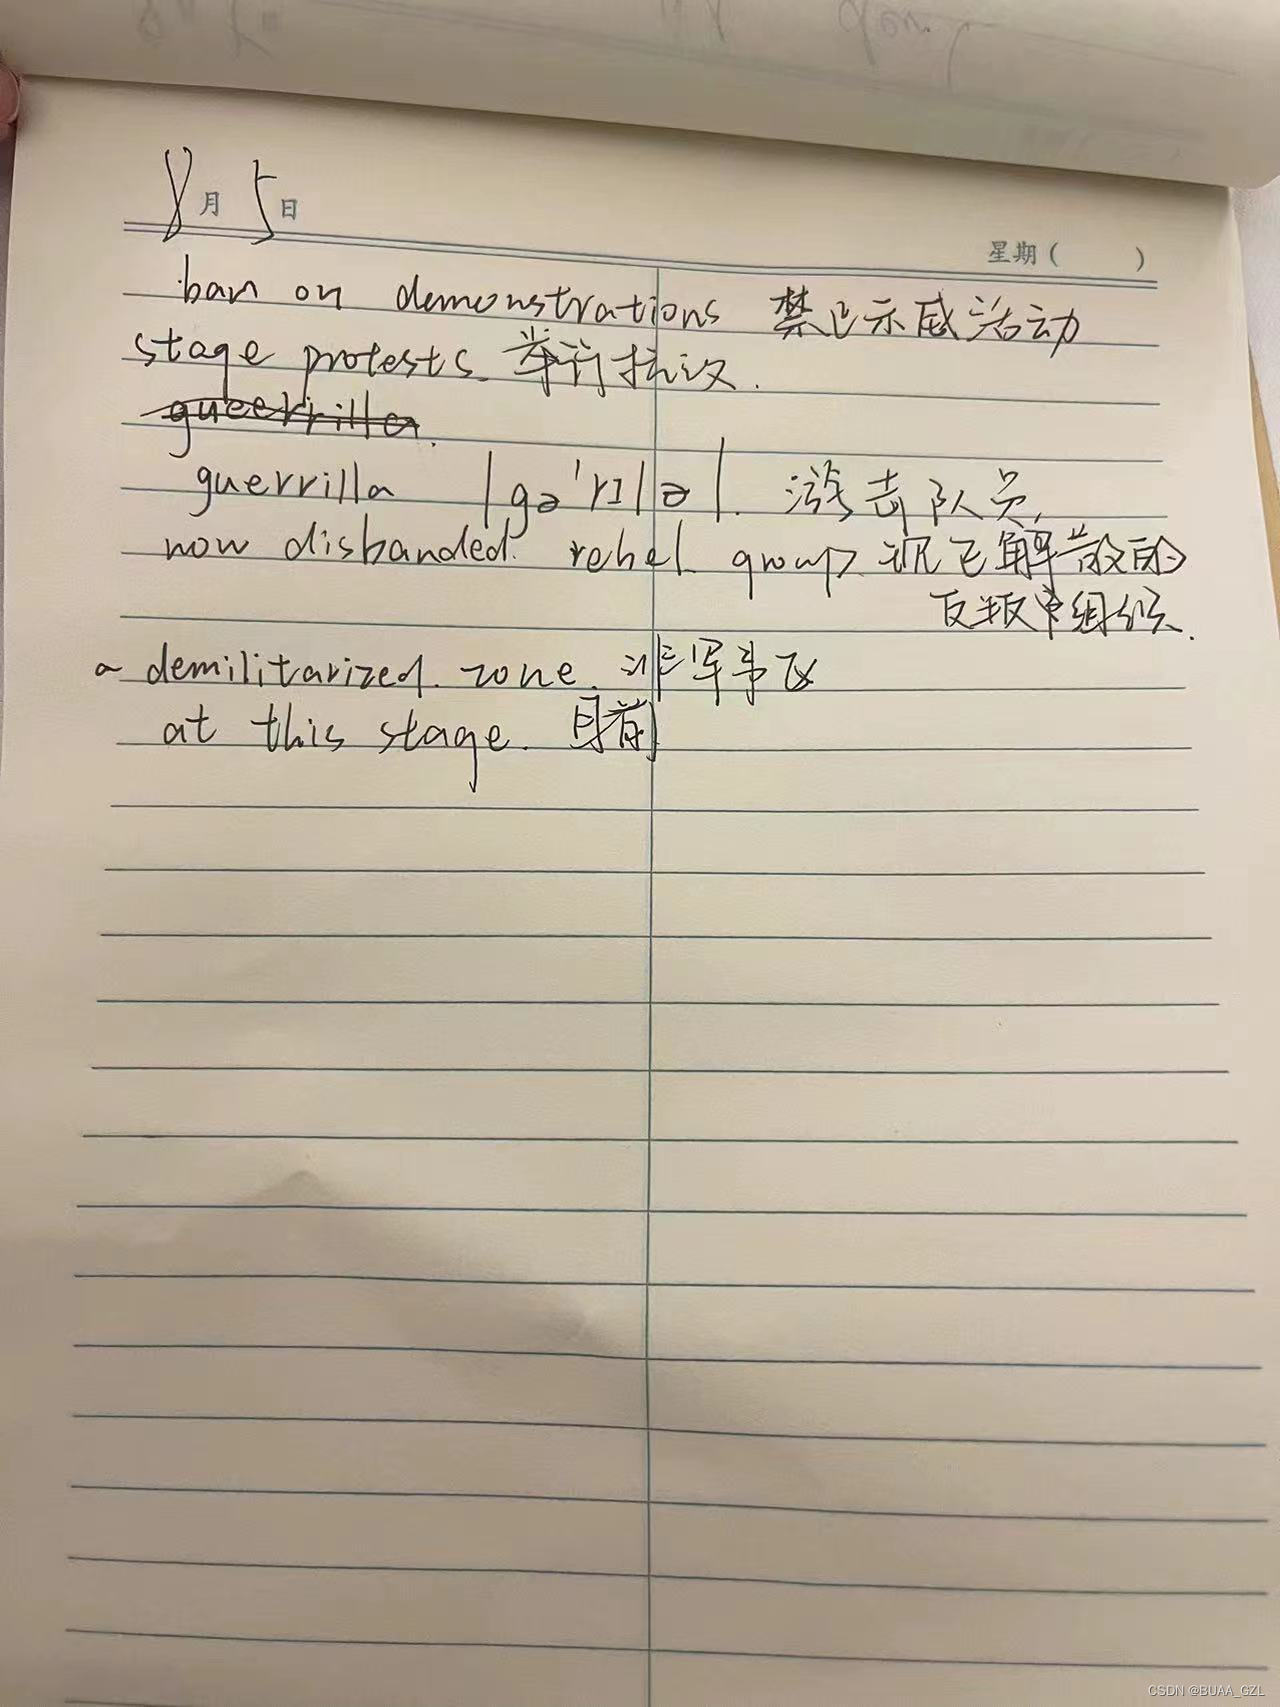 8月5日
星期( )
ban on demonstrations 禁止示威活动
stage protests. 举行抗议.
gueerrilla.
guerrilla |gə'rɪlə|. 游击队员.
now disbanded. rebel group. 现已解散的
反叛军组织.
a demilitarized. zone. 非军事区
at this stage. 目前
CSDN @BUAA_GZL